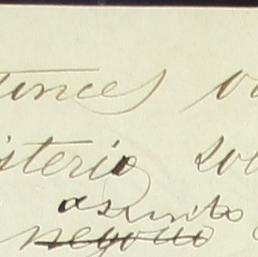 tinces
isterio sob
asunto
negocio